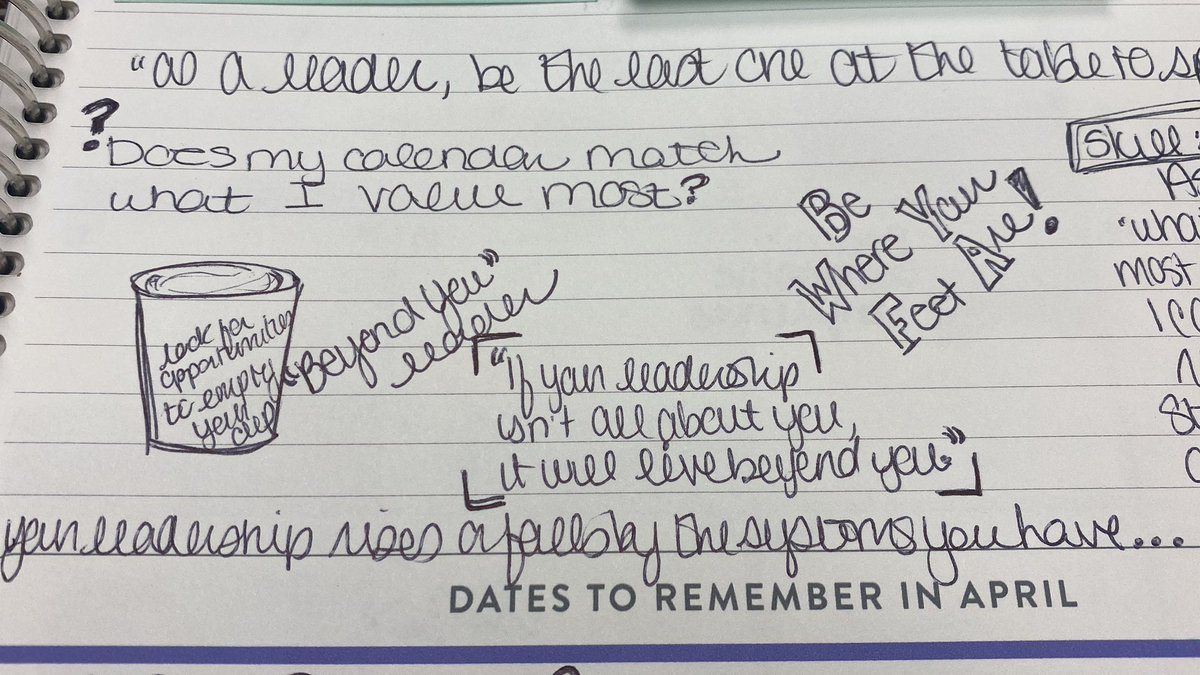 "as a leader, be the last one at the table to
?
Does my calendar match
what I value most?
Skill
Be
Where Your
Feet Are!
"Beyond You"
leader
look for
opportunities
to empty
your
cup
"If your leadership
isn't all about you,
it will live beyond you."
most
your leadership rises or falls by the systems you have...
DATES TO REMEMBER IN APRIL